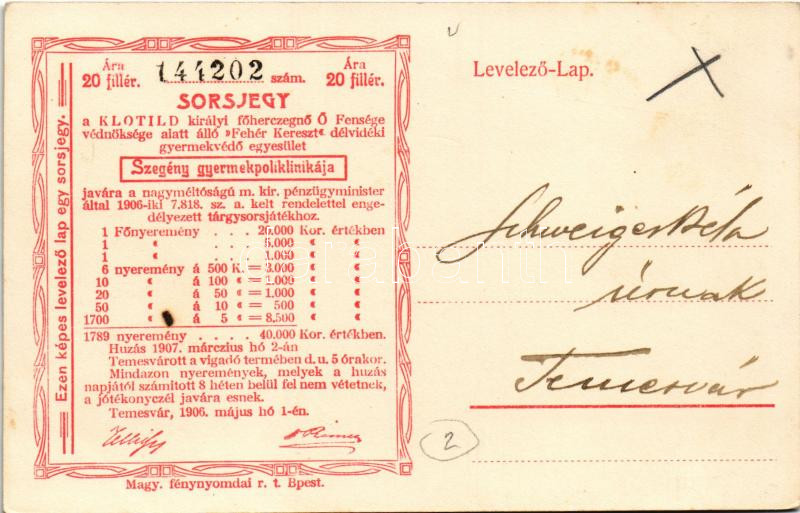 Ára
20 fillér.
144202 szám.
Ára
20 fillér.
SORSJEGY
a KLOTILD királyi főherczegnő Ő Fensége
védnöksége alatt álló »Fehér Kereszt« délvidéki
gyermekvédő egyesület
Szegény gyermekpoliklinikája
javára a nagyméltóságú m. kir. pénzügyminister
által 1906-iki 7.818. sz. a. kelt rendelettel enge-
délyezett tárgysorsjátékhoz.
1 Főnyeremény . . . 20.000 Kor. értékben
1 « . . . 5.000 « «
1 « . . . 1.000 « «
6 nyeremény á 500 K. = 3.000 « «
10 « á 100 « = 1.000 « «
20 « á 50 « = 1.000 « «
50 « á 10 « = 500 « «
1700 « á 5 « = 8.500 « «
1789 nyeremény . . . . 40.000 Kor. értékben.
Huzás 1907. márczius hó 2-án
Temesvárott a vigadó termében d. u. 5 órakor.
Mindazon nyeremények, melyek a huzás
napjától számított 8 héten belül fel nem vétetnek,
a jótékonyczél javára esnek.
Temesvár, 1906. május hó 1-én.
Magy. fénynyomdai r. t. Bpest.
Ezen képes levelező lap egy sorsjegy.
Levelező-Lap.
Schweiger Béla
úrnak
Temesvár
2